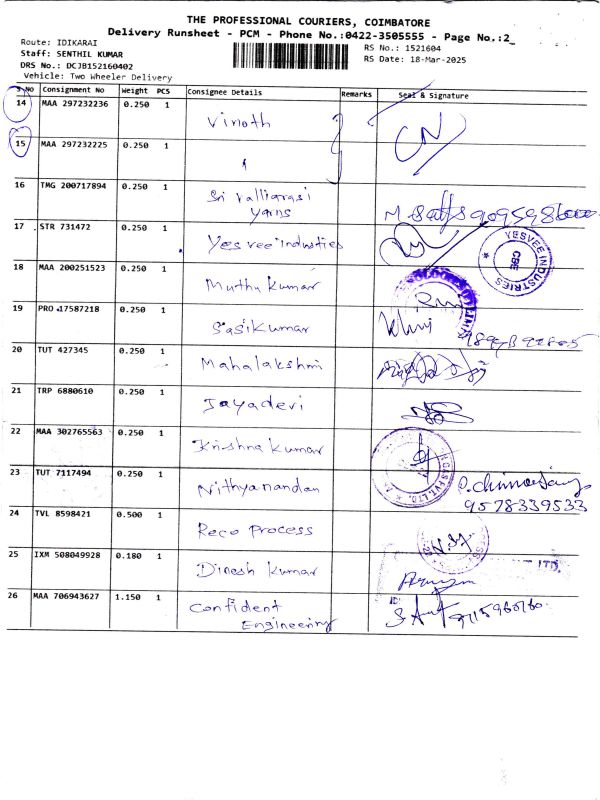 THE PROFESSIONAL COURIERS, COIMBATORE
Delivery Runsheet - PCM - Phone No.:0422-3505555 - Page No.:2
Route: IDIKARAI
RS No.: 1521604
Staff: SENTHIL KUMAR
RS Date: 18-Mar-2025
DRS No.: DCJB152160402
Vehicle: Two Wheeler Delivery
S No Consignment No Weight PCS Consignee Details Remarks Seal & Signature
14 MAA 297232236 0.250 1 Vinoth CN
15 MAA 297232225 0.250 1
16 TMG 200717894 0.250 1 Sri Valliarasi
yarns
17 STR 731472 0.250 1 Yesvee industies
YESVEE INDUSTRIES
CBE
18 MAA 200251523 0.250 1 Muthu Kumar
19 PRO 17587218 0.250 1 Sasikumar
20 TUT 427345 0.250 1 Mahalakshmi
21 TRP 6880610 0.250 1 Jayadevi
22 MAA 302765563 0.250 1 Krishna Kumar
23 TUT 7117494 0.250 1 Nithyanandan
9578339533
24 TVL 8598421 0.500 1 Reco Process
25 IXM 508049928 0.180 1 Dinesh Kumar
26 MAA 706943627 1.150 1 Confident
Engineering